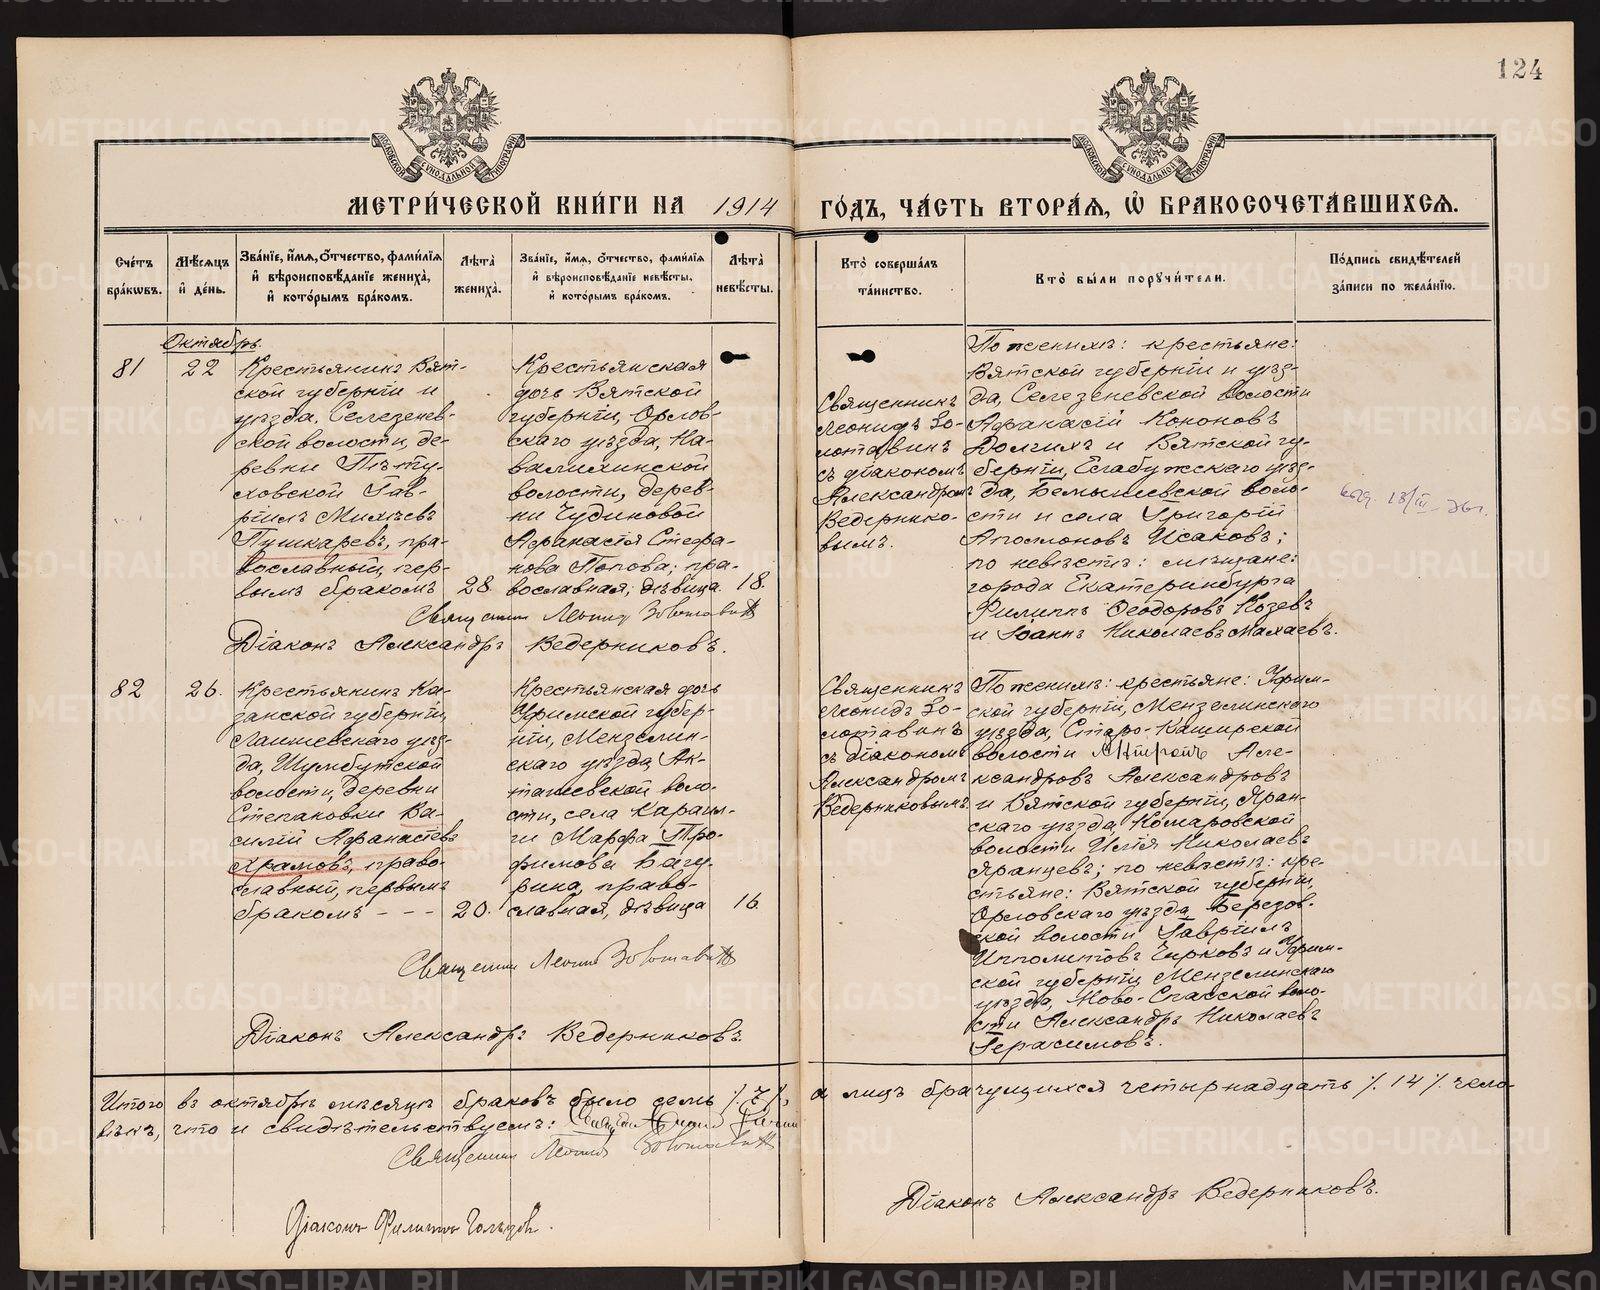 124
МОСКОВСКОЙ СѴНОДАЛЬНОЙ ТИПОГРАФІИ
МОСКОВСКОЙ СѴНОДАЛЬНОЙ ТИПОГРАФІИ
МЕТРИ́ЧЕСКОЙ КНИ́ГИ НА 1914 ГО́ДЪ, ЧА́СТЬ ВТОРА́Я, Ѽ БРАКОСОЧЕТА́ВШИХСЯ.
Сче́тъ
бра́кѡвъ.
Мѣ́сяцъ
и҆ де́нь.
Зва́нїе, и҆́мя, ѻ҆́тчество, фами́лїя
и҆ вѣроисповѣ́данїе жениха̀,
и҆ кото́рымъ бра́комъ.
Лѣ́та
жениха̀.
Зва́нїе, и҆́мя, ѻ҆́тчество, фами́лїя
и҆ вѣроисповѣ́данїе невѣ́сты,
и҆ кото́рымъ бра́комъ.
Лѣ́та
невѣ́сты.
Кто̀ соверша́лъ
та́инство.
Кто̀ бы́ли порꙋчи́тели.
По́дпись свидѣ́телей
за́писи по жела́нїю.
Октябрь
81
22
Крестьянинъ Вят-
ской губерніи и
уѣзда, Селезенев-
ской волости, де-
ревни Пѣту-
ховской Гав-
ріилъ Михѣевъ
Пушкаревъ, пра-
вославный, пер-
вымъ бракомъ
28.
Крестьянская
дочь Вятской
губерніи, Орлов-
скаго уѣзда, Ка-
валихинской
волости, дерев-
ни Чудиновой
Афанасія Стефа-
нова Попова; пра-
вославная; дѣвица
18.
Священникъ Леонидъ Золотавинъ
Діаконъ Александръ Ведерниковъ.
Священникъ
Леонидъ Зо-
лотавинъ
съ діакономъ
Александромъ
Ведернико-
вымъ.
По женихѣ: крестьяне:
Вятской губерніи и уѣз-
да, Селезеневской волости
Афанасій Кононовъ
Долгихъ и Вятской гу-
берніи, Елабужскаго уѣз-
да, Бемышевской воло-
сти и села Григорій
Аполлоновъ Исаковъ;
по невѣстѣ: мѣщане:
города Екатеринбурга
Филиппъ Ѳеодоровъ Козевъ
и Іоаннъ Николаевъ Махаевъ.
82
26.
Крестьянинъ Ка-
занской губерніи,
Лаишевскаго уѣз-
да, Шумбутской
волости, деревни
Степановки Ва-
силій Афанасіевъ
Храмовъ, право-
славный, первымъ
бракомъ - - -
20.
Крестьянская дочь
Уфимской губер-
ніи, Мензелин-
скаго уѣзда, Ак-
ташевской воло-
сти, села Карачи-
ги Марфа Тро-
фимова Багу-
рина, право-
славная, дѣвица
16.
Священникъ Леонидъ Золотавинъ
Діаконъ Александръ Ведерниковъ.
Священникъ
Леонидъ Зо-
лотавинъ
съ діакономъ
Александромъ
Ведерниковымъ.
По женихѣ: крестьяне: Уфим-
ской губерніи, Мензелинскаго
уѣзда, Старо-Каширской
волости Митрофанъ Але-
ксандровъ Александровъ
и Вятской губерніи, Яран-
скаго уѣзда, Комаровской
волости Илія Николаевъ
Яранцевъ; по невѣстѣ: кре-
стьяне: Вятской губерніи,
Орловскаго уѣзда, Березов-
ской волости Гавріилъ
Ипполитовъ Чирковъ и Уфим-
ской губерніи, Мензелинскаго
уѣзда, Ново-Спасской воло-
сти Александръ Николаевъ
Герасимовъ.
Итого въ октябрѣ мѣсяцѣ браковъ было семь ⁒ 7 ⁒, а лицъ брачущихся четырнадцать ⁒ 14 ⁒ чело-
вѣкъ, что и свидѣтельствуемъ:
Священникъ Леонидъ Золотавинъ
Діаконъ Александръ Ведерниковъ.
Діаконъ Филиппъ Гольцовъ.
METRIKI.GASO-URAL.RU